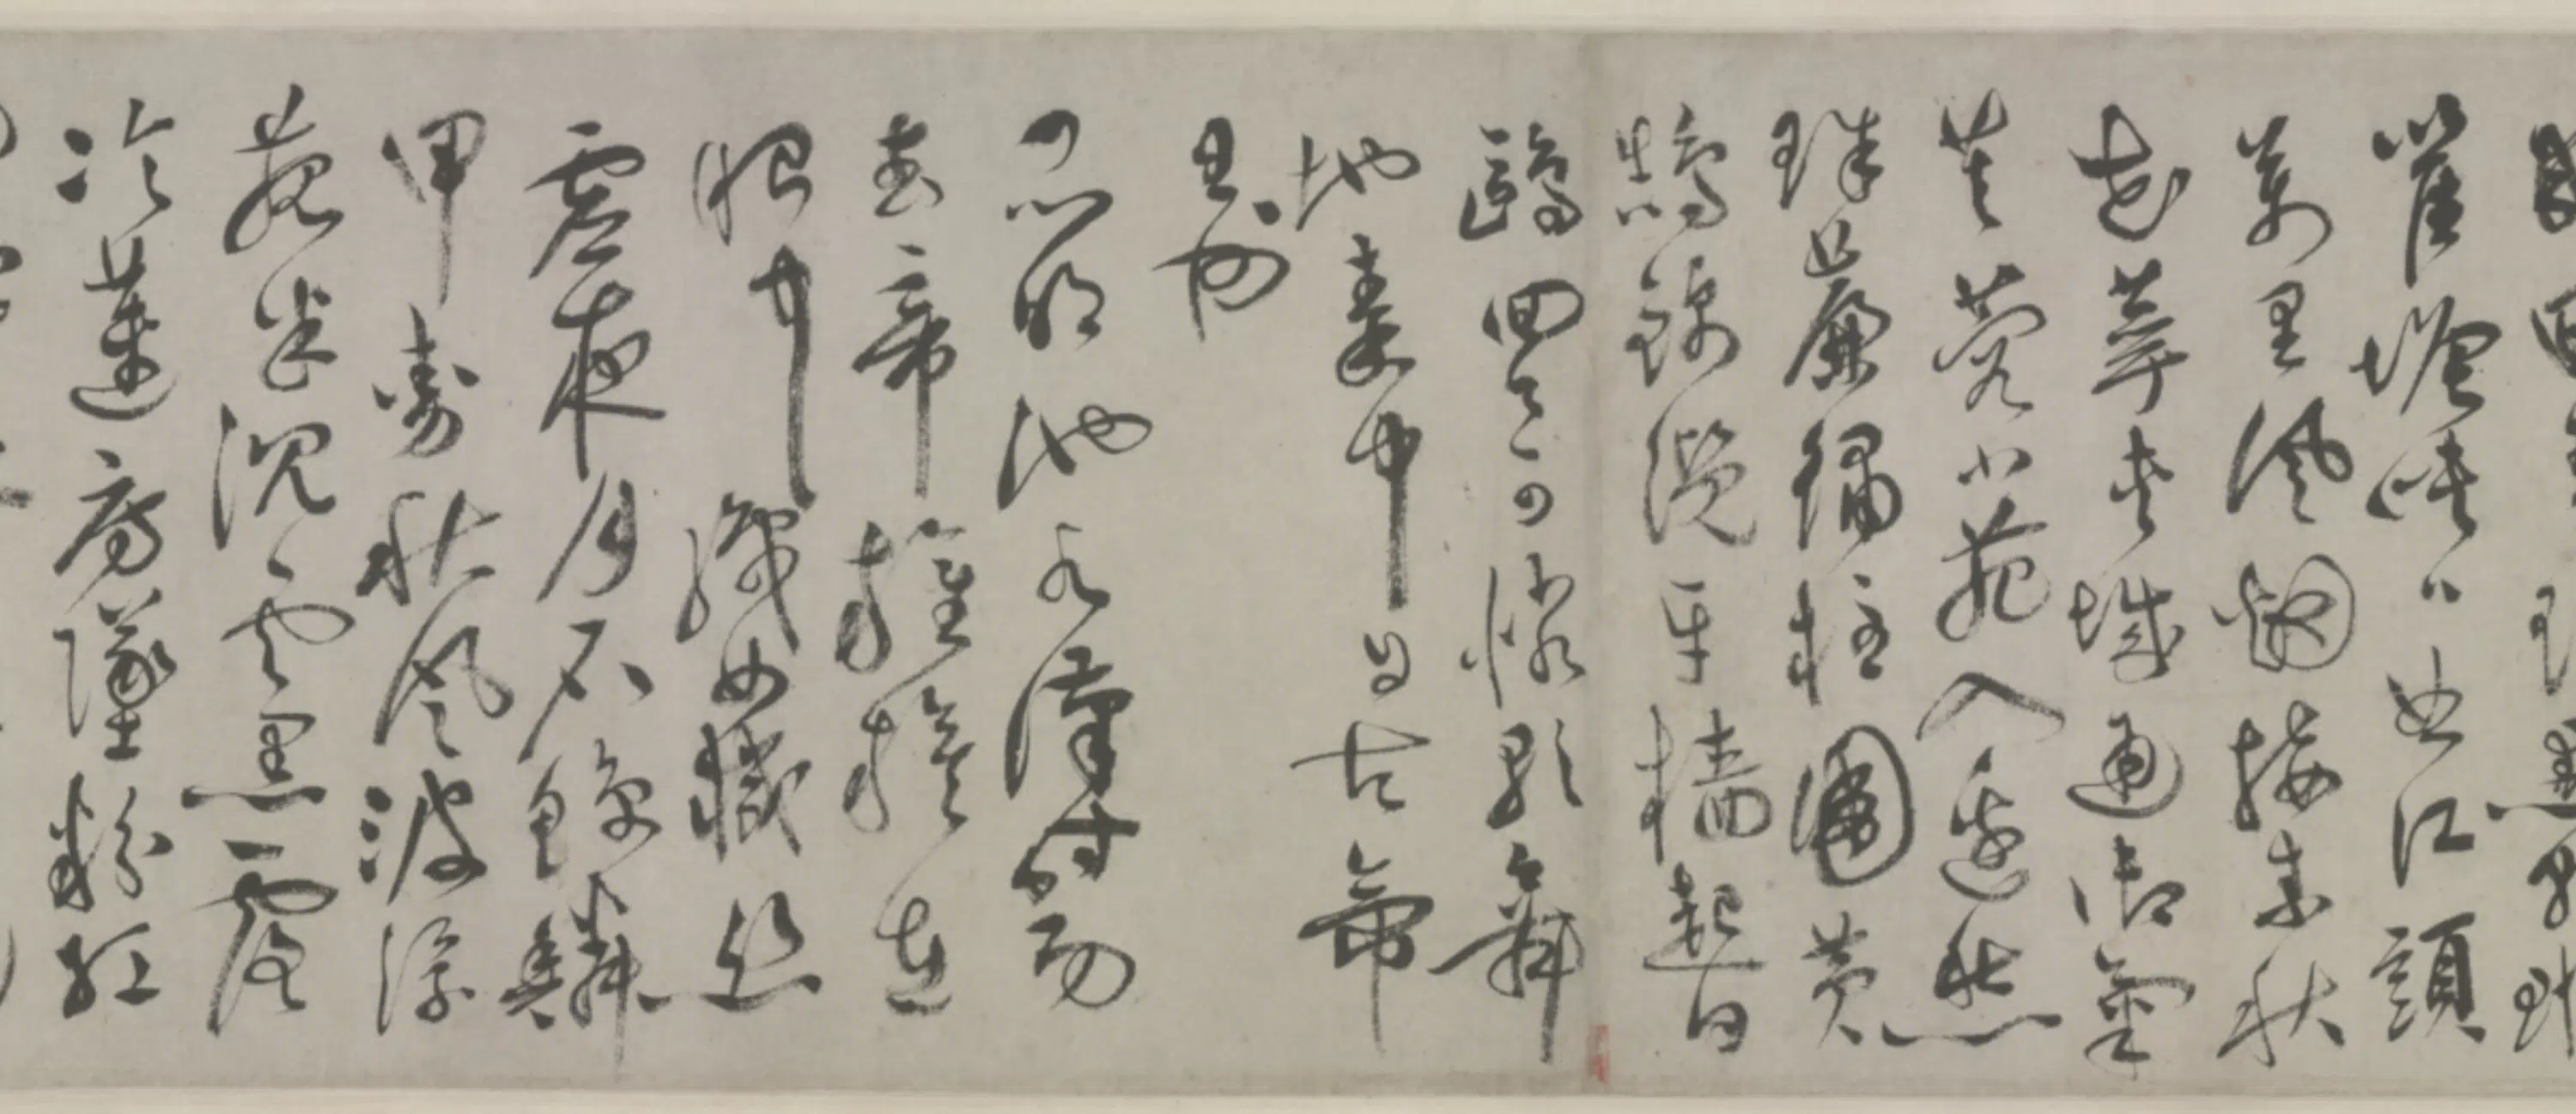 瞿塘峽口曲江頭
萬里風烟接素秋
花萼夾城通御氣
芙蓉小苑入邊愁
珠簾繡柱圍黃
鵠錦纜牙檣起白
鷗回首可憐歌舞
地秦中自古帝
王州
昆明池水漢時功
武帝旌旗在
眼中織女機絲
虛夜月石鯨鱗
甲動秋風波漂
菰米沈雲黑露
冷蓮房墜粉紅